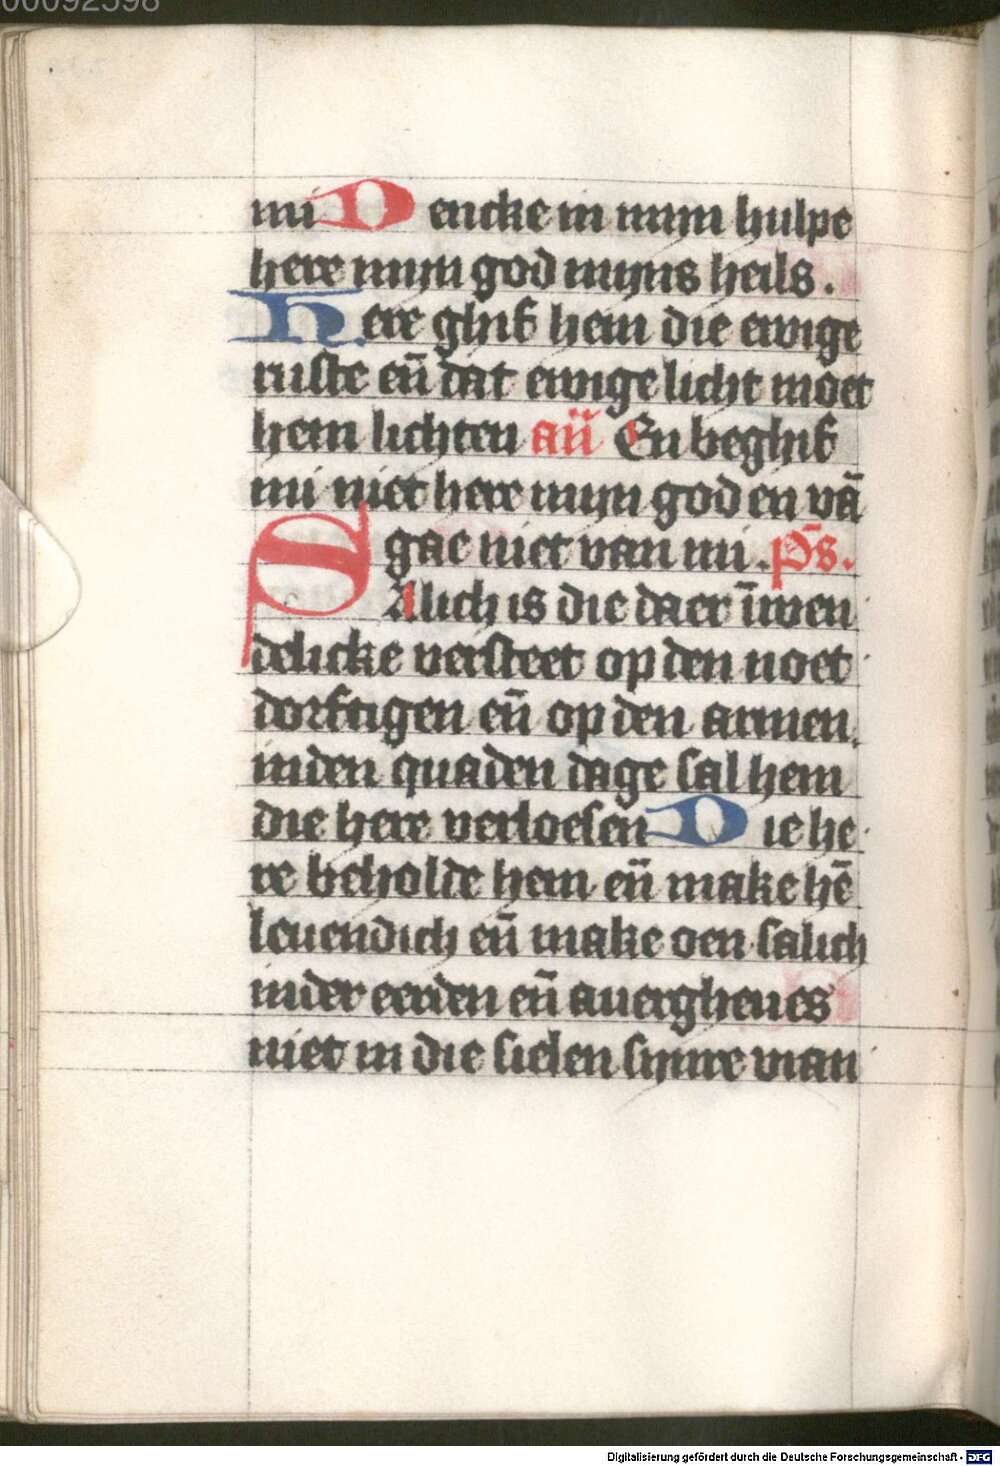 00092598
mi Dencke in mijn hulpe
here mijn god mijns heils .
Here ghif hem die ewige
ruste eñ dat ewige licht moet
hem lichten añ En beghif
mi niet here mijn god en vā
gae niet van mi . p̄s.
SAlich is die daer īwen
delicke versteet op den noet
dorftigen eñ op den armen.
inden quaden dage sal hem
die here verloesen Die he
re beholde hem eñ make hē
leuendich eñ make oen salich
inder eerden eñ auergheues
niet in die sielen sijnre vian
Digitalisierung gefördert durch die Deutsche Forschungsgemeinschaft - DFG